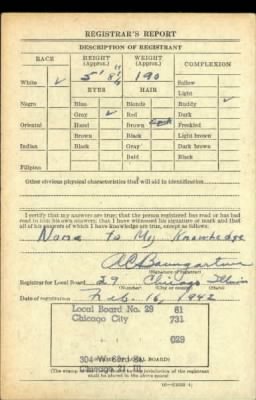 REGISTRAR'S REPORT
DESCRIPTION OF REGISTRANT
RACE HEIGHT (Approx.) WEIGHT (Approx.) COMPLEXION
White ✓ 5' 8½" 190 Sallow
Light
EYES HAIR Ruddy ✓
Negro Blue Blonde Dark
Gray ✓ Red Freckled
Oriental Hazel Brown Light brown
Brown Black Dark brown
Indian Black Gray Black
Bald
Filipino
Other obvious physical characteristics that will aid in identification
I certify that my answers are true; that the person registered has read or has had
read to him his own answers; that I have witnessed his signature or mark and that
all of his answers of which I have knowledge are true, except as follows:
None To My Knowledge
A C Baumgartner
(Signature of registrar)
Registrar for Local Board 29 Chicago Illinois
(Number) (City or county) (State)
Date of registration Feb. 16, 1942
Local Board No. 29 61
Chicago City 731
029
304 W. 63rd St.
Chicago 21, Ill
(The stamp of the Local Board having jurisdiction of the registrant
shall be placed in the above space)